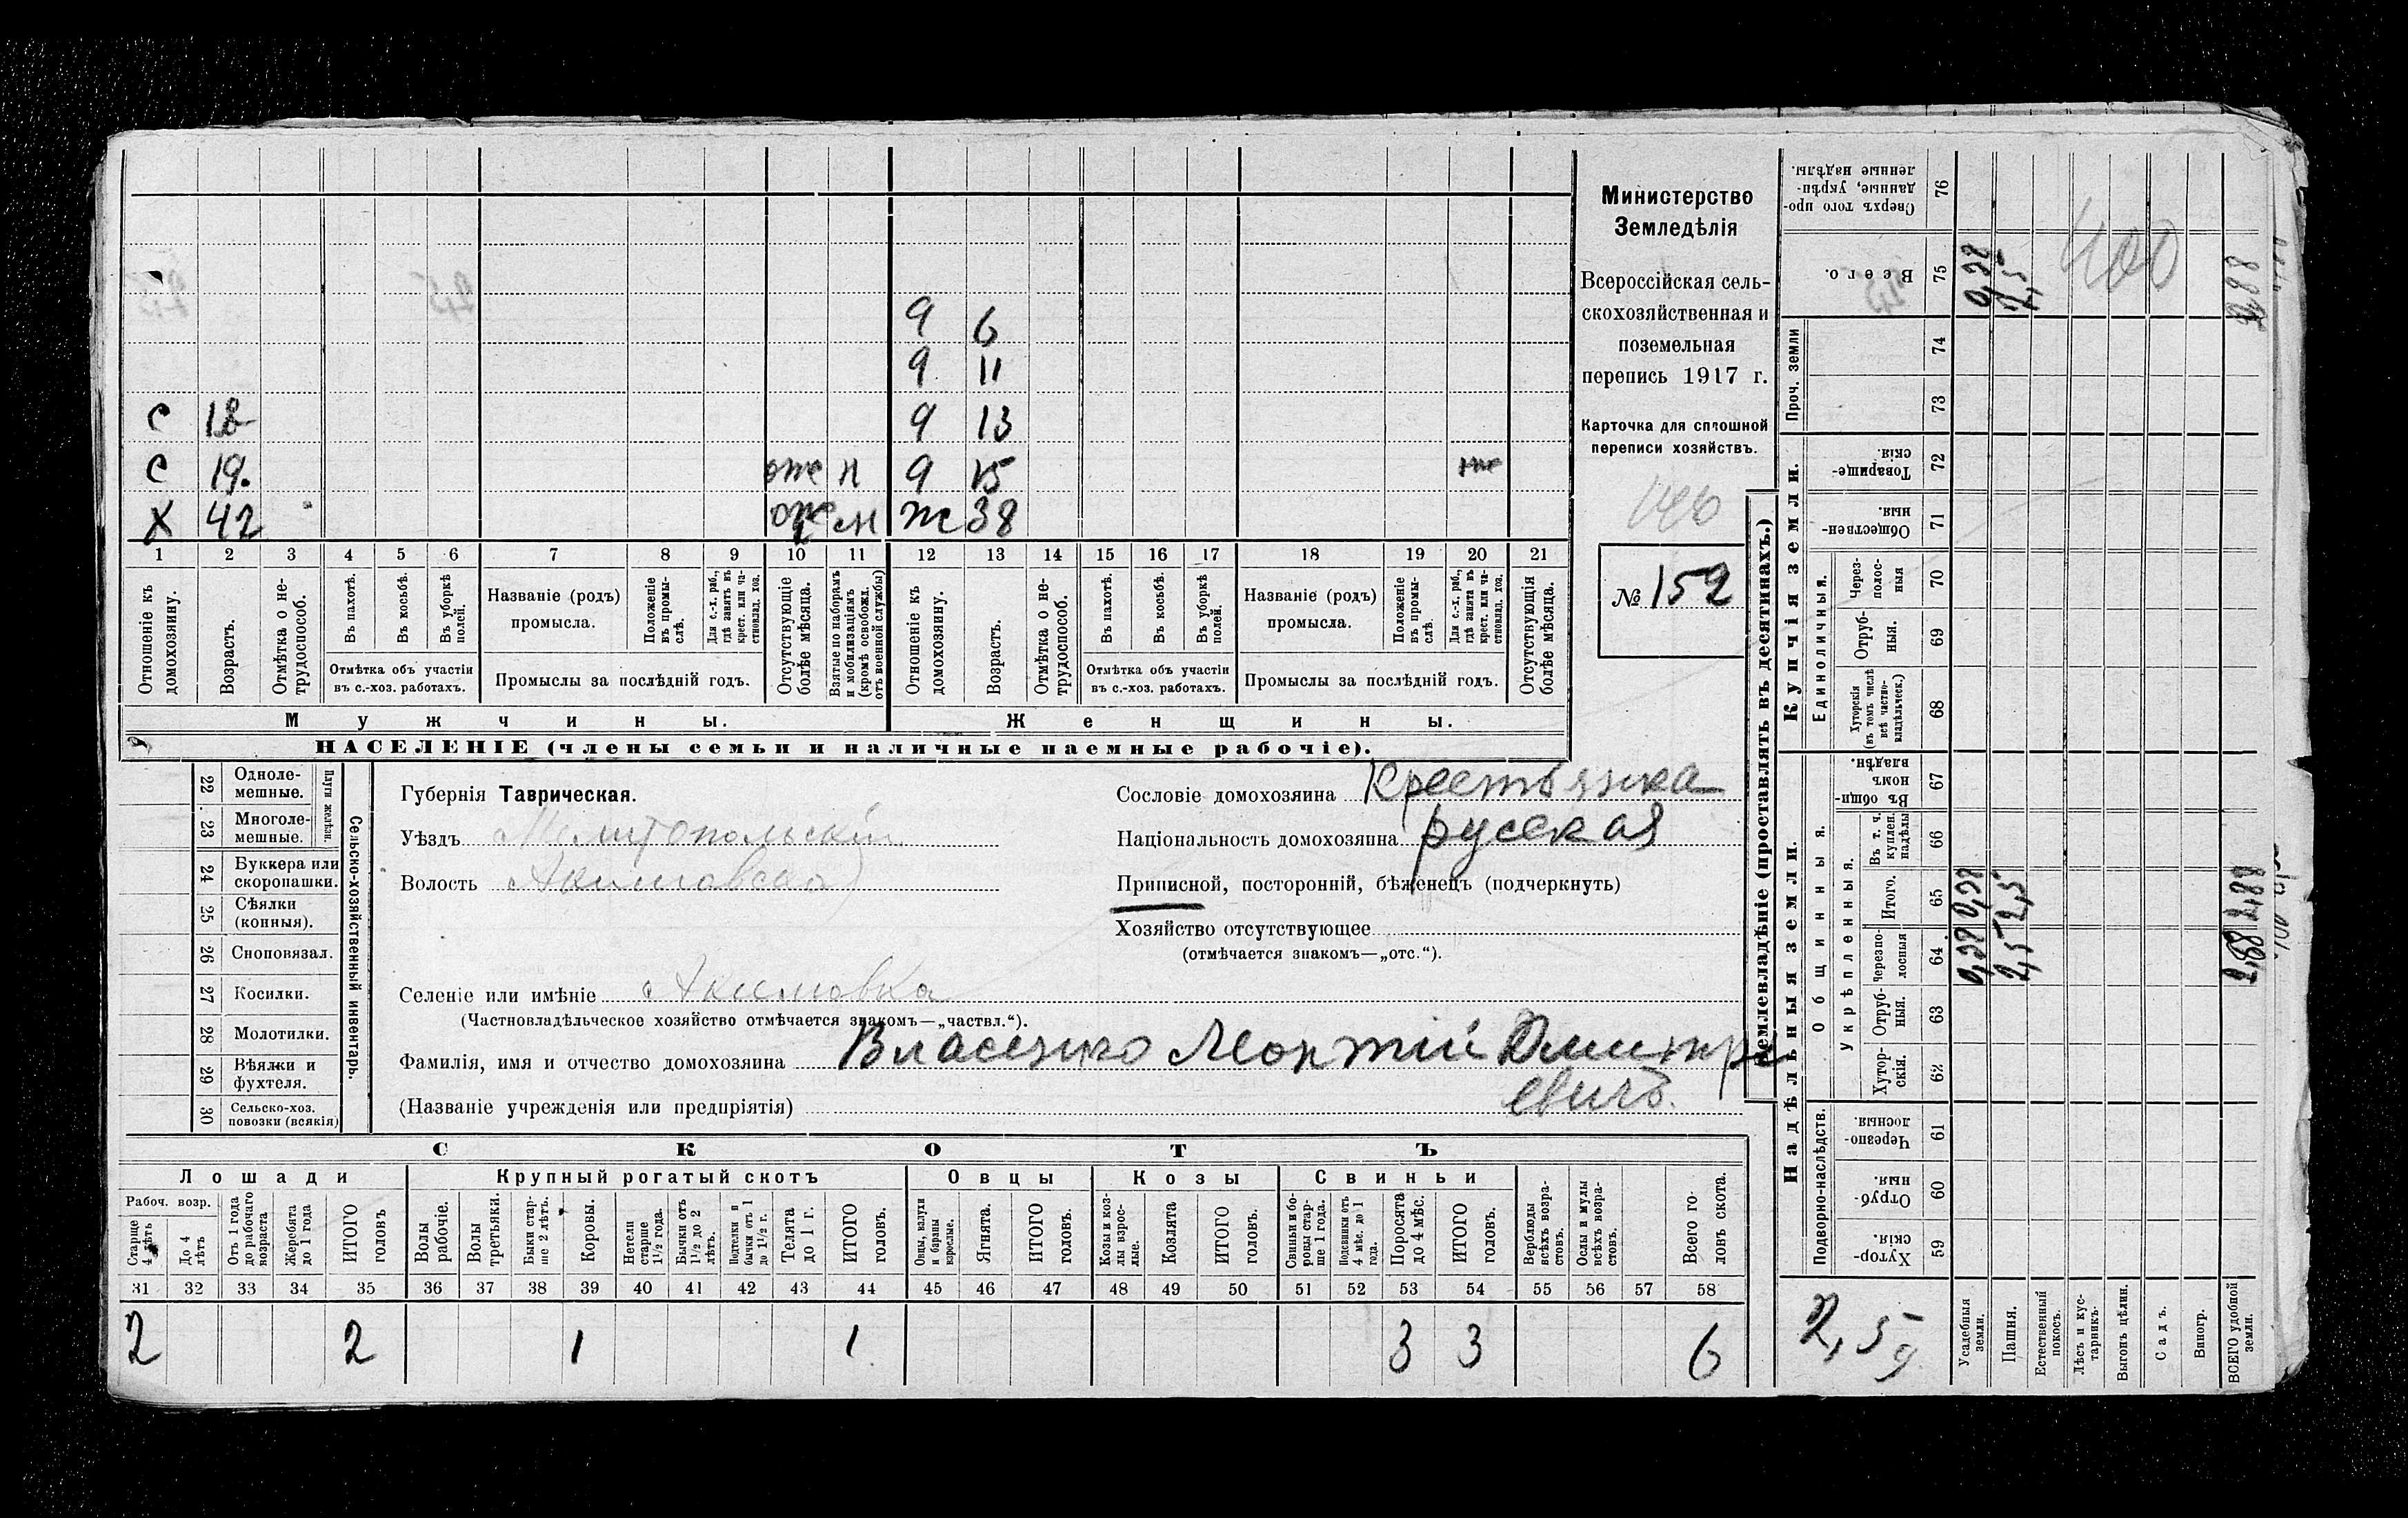 9 6
9 11
С 12 9 13
С 19. оже н 9 15 же
Х 42 оже м ж 38
1 2 3 4 5 6 7 8 9 10 11 12 13 14 15 16 17 18 19 20 21
Отношеніе къ домохозяину.
Возрастъ.
Отмѣтка о нетрудоспособ.
Въ пахотѣ.
Въ косьбѣ.
Въ уборкѣ полей.
Отмѣтка объ участіи
въ с.-хоз. работахъ.
Названіе (родъ)
промысла.
Положеніе въ промыслѣ.
Для с.-х. раб., гдѣ занятъ въ крест. или частновлад. хоз.
Промыслы за послѣдній годъ.
Отсутствующіе болѣе мѣсяца.
Взятые по наборамъ и мобилизаціямъ (кромѣ освобожд. отъ военной службы)
Отношеніе къ домохозяину.
Возрастъ.
Отмѣтка о нетрудоспособ.
Въ пахотѣ.
Въ косьбѣ.
Въ уборкѣ полей.
Отмѣтка объ участіи
въ с.-хоз. работахъ.
Названіе (родъ)
промысла.
Положеніе въ промыслѣ.
Для с.-х. раб., гдѣ занята въ крест. или частновлад. хоз.
Промыслы за послѣдній годъ.
Отсутствующія болѣе мѣсяца.
Мужчины.
Женщины.
НАСЕЛЕНІЕ (члены семьи и наличные наемные рабочіе).
Министерство
Земледѣлія
Всероссійская сель-
скохозяйственная и
поземельная
перепись 1917 г.
Карточка для сплошной
переписи хозяйствъ.
146
№ 152
22 Одноле-
мешные.
23 Многоле-
мешные.
Плуги желѣзн.
24 Буккера или
скоропашки.
25 Сѣялки
(конныя).
26 Сноповязал.
27 Косилки.
28 Молотилки.
29 Вѣялки и
фухтеля.
30 Сельско-хоз.
повозки (всякія)
Сельско-хозяйственный инвентарь.
Губернія Таврическая.
Уѣздъ Мелитопольскій
Волость Акимовская
Селеніе или имѣніе Акимовка
(Частновладѣльческое хозяйство отмѣчается знакомъ—„частвл.“).
Фамилія, имя и отчество домохозяина Власенко Леонтій Дмитри
евичъ.
(Названіе учрежденія или предпріятія)
Сословіе домохозяина Крестьянка
Національность домохозяина русская
Приписной, посторонній, бѣженецъ (подчеркнуть)
Хозяйство отсутствующее
(отмѣчается знакомъ—„отс.“).
СКОТЪ
Лошади
Крупный рогатый скотъ
Овцы
Козы
Свиньи
Рабоч. возр.
Старше 4 лѣтъ
До 4 лѣтъ
Отъ 1 года до рабочаго возраста
Жеребята до 1 года
ИТОГО головъ
Волы рабочіе.
Волы третьяки.
Быки старше 2 лѣтъ.
Коровы.
Нетели старше 1½ года.
Бычки отъ 1½ до 2 лѣтъ.
Подтелки и бычки отъ 1 до 1½ г.
Телята до 1 г.
ИТОГО головъ.
Овцы, валухи и бараны взрослые.
Ягнята.
ИТОГО головъ.
Козы и козлы взрослые.
Козлята
ИТОГО головъ.
Свиньи и боровы старше 1 года.
Подсвинки отъ 4 мѣс. до 1 года.
Поросята до 4 мѣс.
ИТОГО головъ.
Верблюды всѣхъ возрастовъ.
Ослы и мулы всѣхъ возрастовъ.
Всего головъ скота.
31 32 33 34 35 36 37 38 39 40 41 42 43 44 45 46 47 48 49 50 51 52 53 54 55 56 57 58
2 2 1 1 3 3 6
Землевладѣніе (проставлять въ десятинахъ.)
Купчія земли.
Надѣльныя земли.
Сверхъ того проданные, укрѣпленные надѣлы. 76
Всего. 75 0,38 2,5 2,88
400
Проч. земли 74
73
Товарищескія. 72
Общественныя. 71
Единоличныя.
Черезполосныя 70
Отрубныя. 69
Хуторскія (въ томъ числѣ всѣ частновладѣльческ.) 68
Общинныя.
Въ общинномъ владѣн. 67
Укрѣпленныя.
Въ т. ч. куплен. надѣлы 66
Итого. 65 0,38 2,5 2,88
Черезполосныя 64 0,38 2,5 2,88
Отрубныя. 63
Хуторскія. 62
Подворно-наслѣдств.
Черезполосныя. 61
Отрубныя. 60
Хуторскія. 59
2,5 д
Усадебныя земли.
Пашня.
Естественный покосъ.
Лѣсъ и кустарникъ.
Выгонъ цѣлин.
Садъ.
Виногр.
ВСЕГО удобной земли.